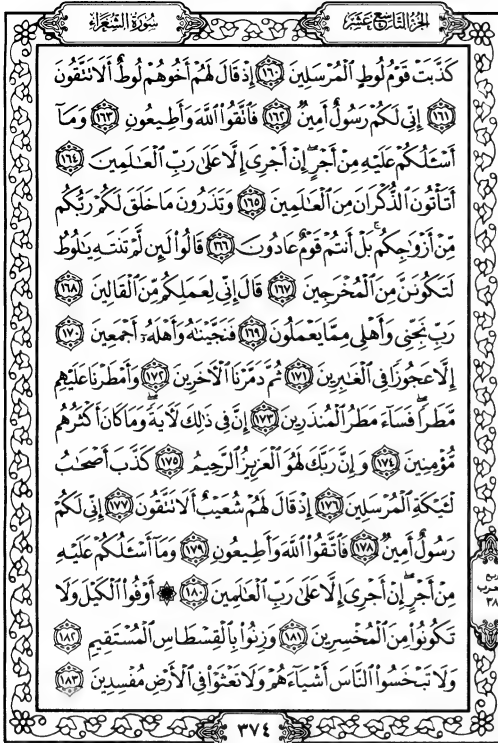 الجزء التاسع عشر
سورة الشعراء
كَذَّبَتْ قَوْمُ لُوطٍ الْمُرْسَلِينَ ١٦٠ إِذْ قَالَ لَهُمْ أَخُوهُمْ لُوطٌ أَلَا تَتَّقُونَ
١٦١ إِنِّي لَكُمْ رَسُولٌ أَمِينٌ ١٦٢ فَاتَّقُوا اللَّهَ وَأَطِيعُونِ ١٦٣ وَمَا
أَسْـَٔلُكُمْ عَلَيْهِ مِنْ أَجْرٍ إِنْ أَجْرِيَ إِلَّا عَلَىٰ رَبِّ الْعَـٰلَمِينَ ١٦٤
أَتَأْتُونَ الذُّكْرَانَ مِنَ الْعَـٰلَمِينَ ١٦٥ وَتَذَرُونَ مَا خَلَقَ لَكُمْ رَبُّكُم
مِّنْ أَزْوَٰجِكُم بَلْ أَنتُمْ قَوْمٌ عَادُونَ ١٦٦ قَالُوا لَئِن لَّمْ تَنتَهِ يَـٰلُوطُ
لَتَكُونَنَّ مِنَ الْمُخْرَجِينَ ١٦٧ قَالَ إِنِّي لِعَمَلِكُم مِّنَ الْقَالِينَ ١٦٨
رَبِّ نَجِّنِي وَأَهْلِي مِمَّا يَعْمَلُونَ ١٦٩ فَنَجَّيْنَـٰهُ وَأَهْلَهُۥٓ أَجْمَعِينَ ١٧٠
إِلَّا عَجُوزًا فِي الْغَـٰبِرِينَ ١٧١ ثُمَّ دَمَّرْنَا الْـَٔاخَرِينَ ١٧٢ وَأَمْطَرْنَا عَلَيْهِم
مَّطَرًا فَسَآءَ مَطَرُ الْمُنذَرِينَ ١٧٣ إِنَّ فِي ذَٰلِكَ لَـَٔايَةً وَمَا كَانَ أَكْثَرُهُم
مُّؤْمِنِينَ ١٧٤ وَإِنَّ رَبَّكَ لَهُوَ الْعَزِيزُ الرَّحِيمُ ١٧٥ كَذَّبَ أَصْحَـٰبُ
لْـَٔيْكَةِ الْمُرْسَلِينَ ١٧٦ إِذْ قَالَ لَهُمْ شُعَيْبٌ أَلَا تَتَّقُونَ ١٧٧ إِنِّي لَكُمْ
رَسُولٌ أَمِينٌ ١٧٨ فَاتَّقُوا اللَّهَ وَأَطِيعُونِ ١٧٩ وَمَآ أَسْـَٔلُكُمْ عَلَيْهِ
مِنْ أَجْرٍ إِنْ أَجْرِيَ إِلَّا عَلَىٰ رَبِّ الْعَـٰلَمِينَ ١٨٠ ۞ أَوْفُوا الْكَيْلَ وَلَا
تَكُونُوا مِنَ الْمُخْسِرِينَ ١٨١ وَزِنُوا بِالْقِسْطَاسِ الْمُسْتَقِيمِ ١٨٢
وَلَا تَبْخَسُوا النَّاسَ أَشْيَآءَهُمْ وَلَا تَعْثَوْا فِي الْأَرْضِ مُفْسِدِينَ ١٨٣
٣٧٤